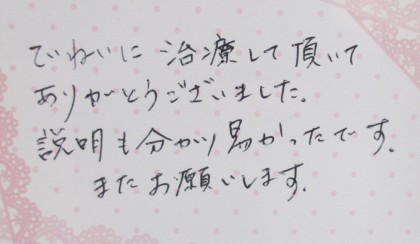 ていねいに 治療して頂いて
ありがとうございました。
説明も分かり易かったです。
またお願いします。